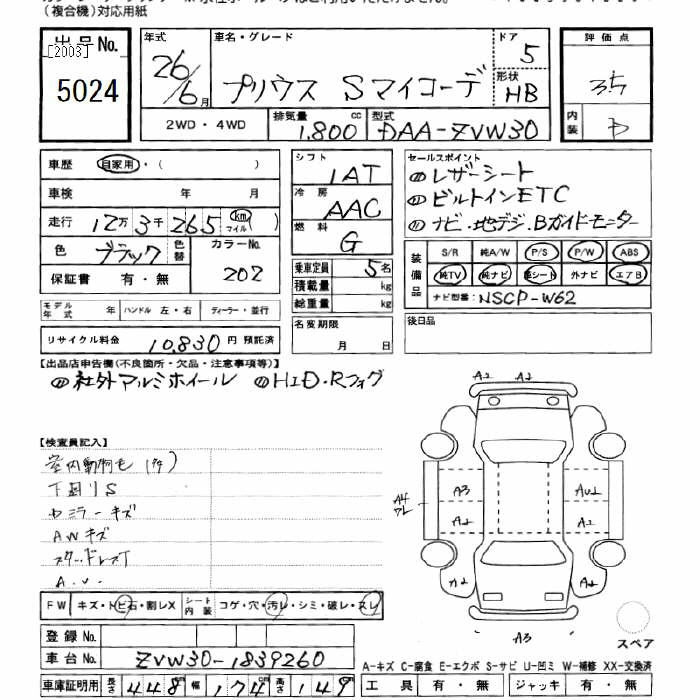 （複合機）対応用紙
出品No.
[2003]
5024
年式 26/6月
車名・グレード プリウス Sマイコーデ
ドア 5
形状 HB
2WD・4WD
排気量 1,800 cc
型式 DAA-ZVW30
評価点 3.5
内装
車歴 自家用・( )
車検 年 月
走行 12万3千265 km マイル( )
色 ブラック 色替
カラーNo. 202
保証書 有・無
モデル年式 年 ハンドル 左・右 ディーラー・並行
リサイクル料金 10,830円 預託済
シフト 1AT
冷房 AAC
燃料 G
乗車定員 5名
積載量 kg
総重量 kg
名変期限
月 日
セールスポイント
レザーシート
ビルトインETC
ナビ・地デジ.Bガイドモニター
装備品
S/R 純A/W P/S P/W ABS
純TV 純ナビ 革シート 外ナビ エアB
ナビ型番: NSCP-W62
後日品
【出品店申告欄(不良箇所・欠品・注意事項等)】
社外アルミホイール HID.Rフォグ
【検査員記入】
下回りS
ミラーキズ
AWキズ
FW キズ・トビ石・割レX
シート内装 コゲ・穴・汚レ・シミ・破レ・スレ
登録No.
車台No. ZVW30-1839260
車庫証明用 長さ 448 cm 幅 174 cm 高さ 149 cm
A2 A2
A4
A3
A2
AU2
A2
A2
A2
A3
スペア
A-キズ C-腐食 E-エクボ S-サビ U-凹ミ W-補修 XX-交換済
工具 有・無 ジャッキ 有・無